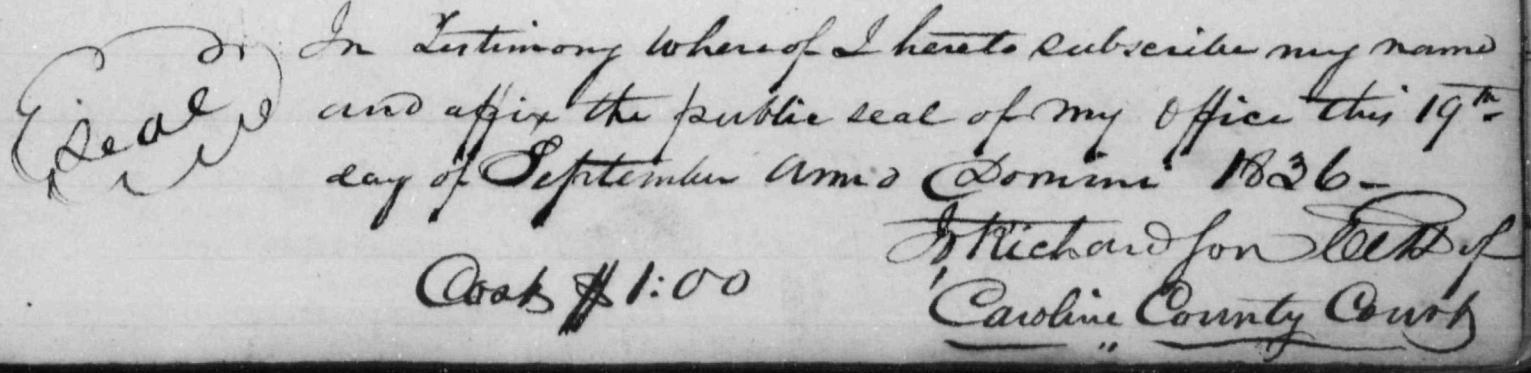 Seal
In Testimony whereof I hereto subscribe my name
and affix the public seal of my Office this 19th
day of September Anno Domini 1836-
Jo Richardson Clk of
Cost $1:00
Caroline County Court